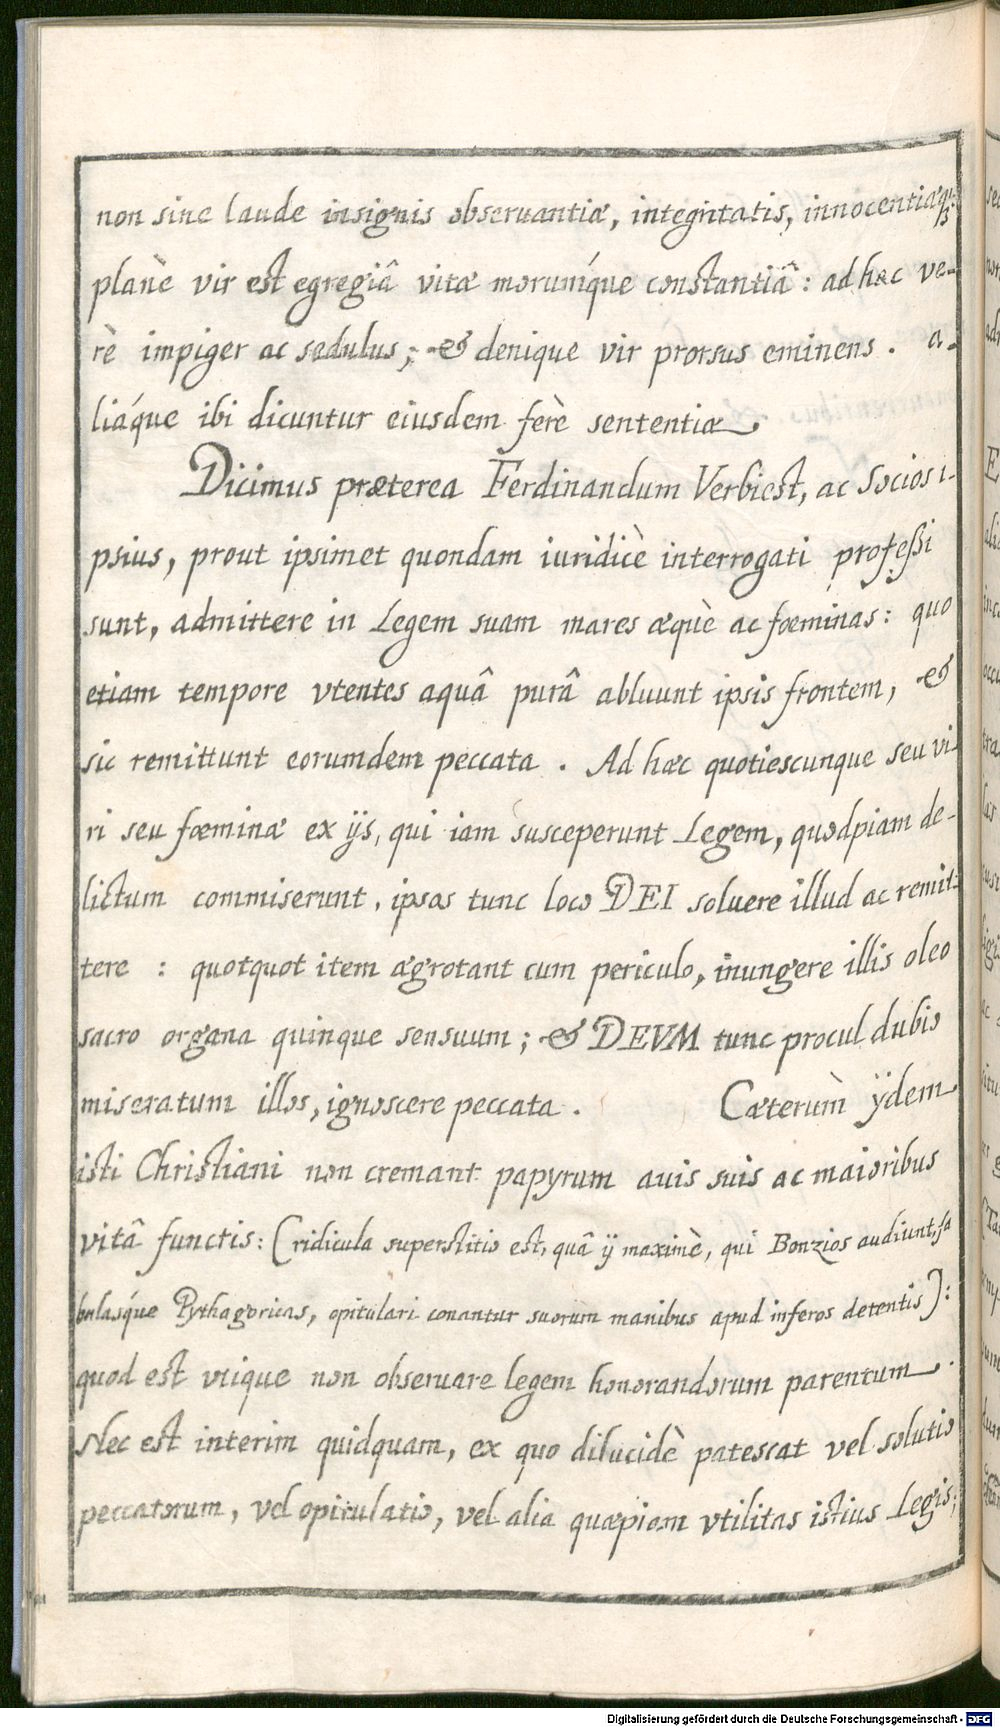 non sine laude insignis obseruantiæ, integritatis, innocentiæq;
planè vir est egregiâ vitæ morumq́ue constantiâ: ad hæc ve-
rè impiger ac sedulus; & denique vir prorsus eminens. a-
liáque ibi dicuntur eiusdem ferè sententiæ.
Dicimus præterea Ferdinandum Verbiest, ac Socios i-
psius, prout ipsimet quondam iuridicè interrogati professi
sunt, admittere in Legem suam mares æquè ac fœminas: quo
etiam tempore vtentes aquâ purâ abluunt ipsis frontem, &
sic remittunt eorumdem peccata. Ad hæc quotiescunque seu vi-
ri seu fœminæ ex ijs, qui iam susceperunt Legem, quodpiam de-
lictum commiserunt, ipsos tunc loco DEI soluere illud ac remit-
tere: quotquot item ægrotant cum periculo, inungere illis oleo
sacro organa quinque sensuum; & DEVM tunc procul dubio
miseratum illos, ignoscere peccata. Cæterùm ijdem
isti Christiani non cremant papyrum auis suis ac maioribus
vitâ functis: (ridicula superstitio est, quâ ij maximè, qui Bonzios audiunt, fa
bulasq́ue Pythagoricas, opitulari conantur suorum manibus apud inferos detentis):
quod est vtique non obseruare legem honorandorum parentum.
Nec est interim quidquam, ex quo dilucidè patescat vel solutio
peccatorum, vel opitulatio, vel alia quæpiam vtilitas istius Legis;
Digitalisierung gefördert durch die Deutsche Forschungsgemeinschaft - DFG